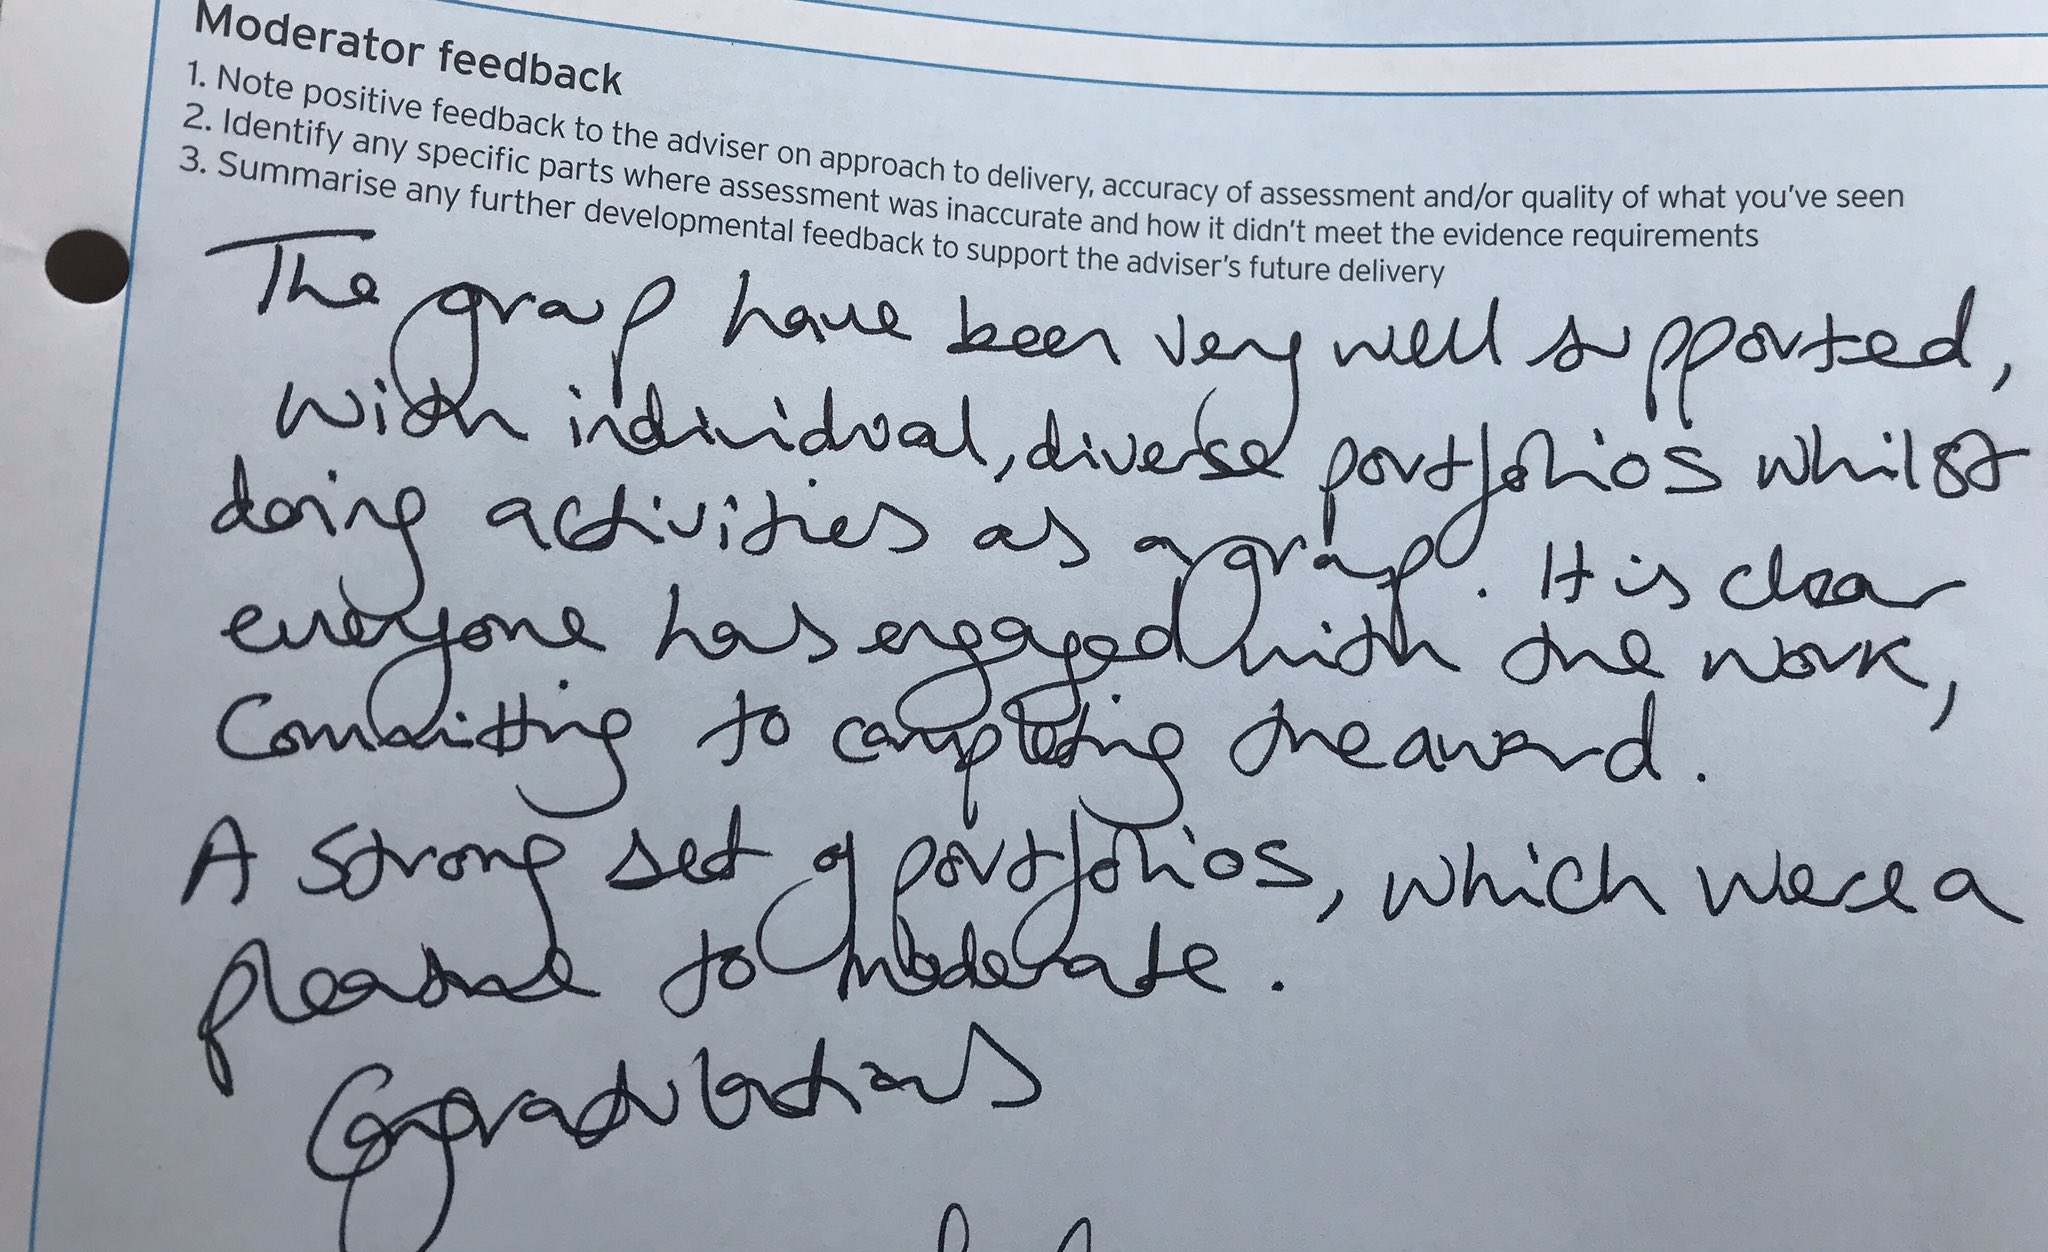 Moderator feedback
1. Note positive feedback to the adviser on approach to delivery, accuracy of assessment and/or quality of what you've seen
2. Identify any specific parts where assessment was inaccurate and how it didn't meet the evidence requirements
3. Summarise any further developmental feedback to support the adviser's future delivery
The group have been very well supported,
with individual, diverse portfolios whilst
doing activities as a group. It is clear
everyone has engaged with the work,
Committing to completing the award.
A strong set of portfolios, which were a
pleasure to moderate.
Congratulations